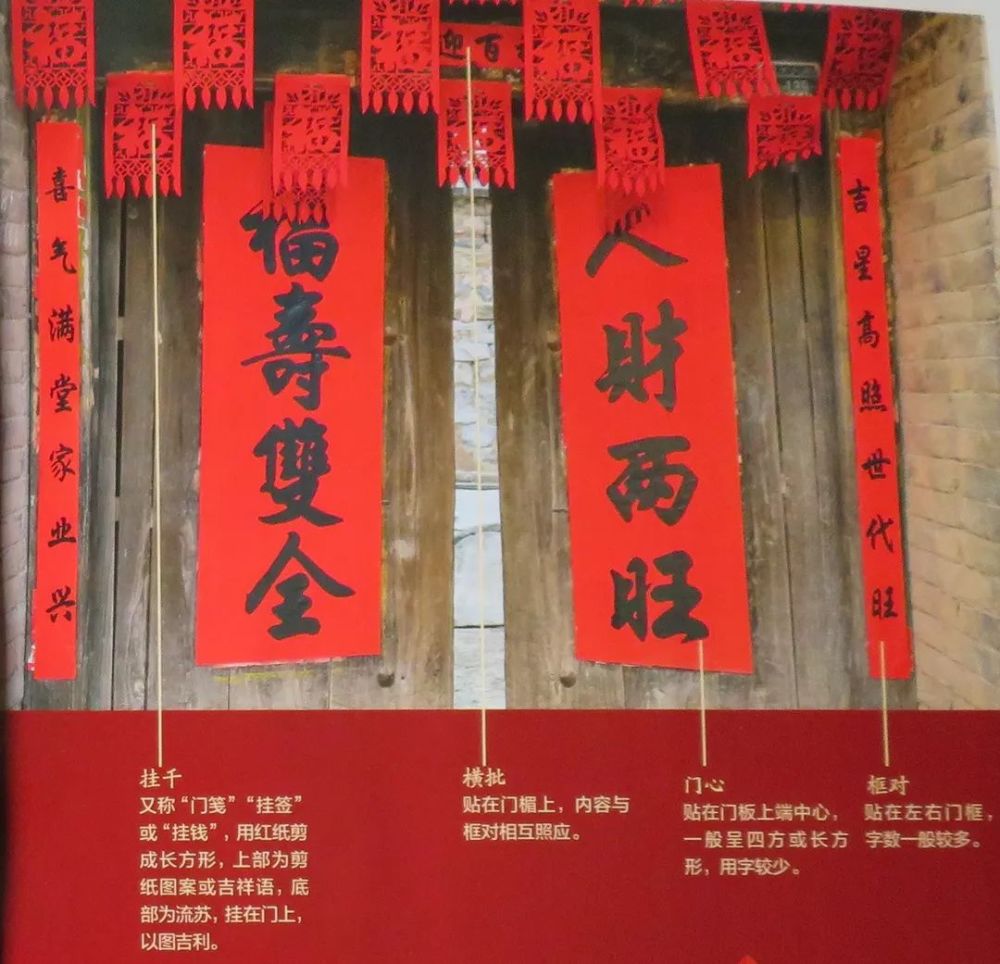 迎百
福
福
福
福
福
福
福
福
福
福
吉星高照世代旺
人财两旺
福壽雙全
喜气满堂家业兴
挂千
又称“门笺”“挂签”
或“挂钱”，用红纸剪
成长方形，上部为剪
纸图案或吉祥语，底
部为流苏，挂在门上，
以图吉利。
横批
贴在门楣上，内容与
框对相互照应。
门心
贴在门板上端中心，
一般呈四方或长方
形，用字较少。
框对
贴在左右门框，
字数一般较多。